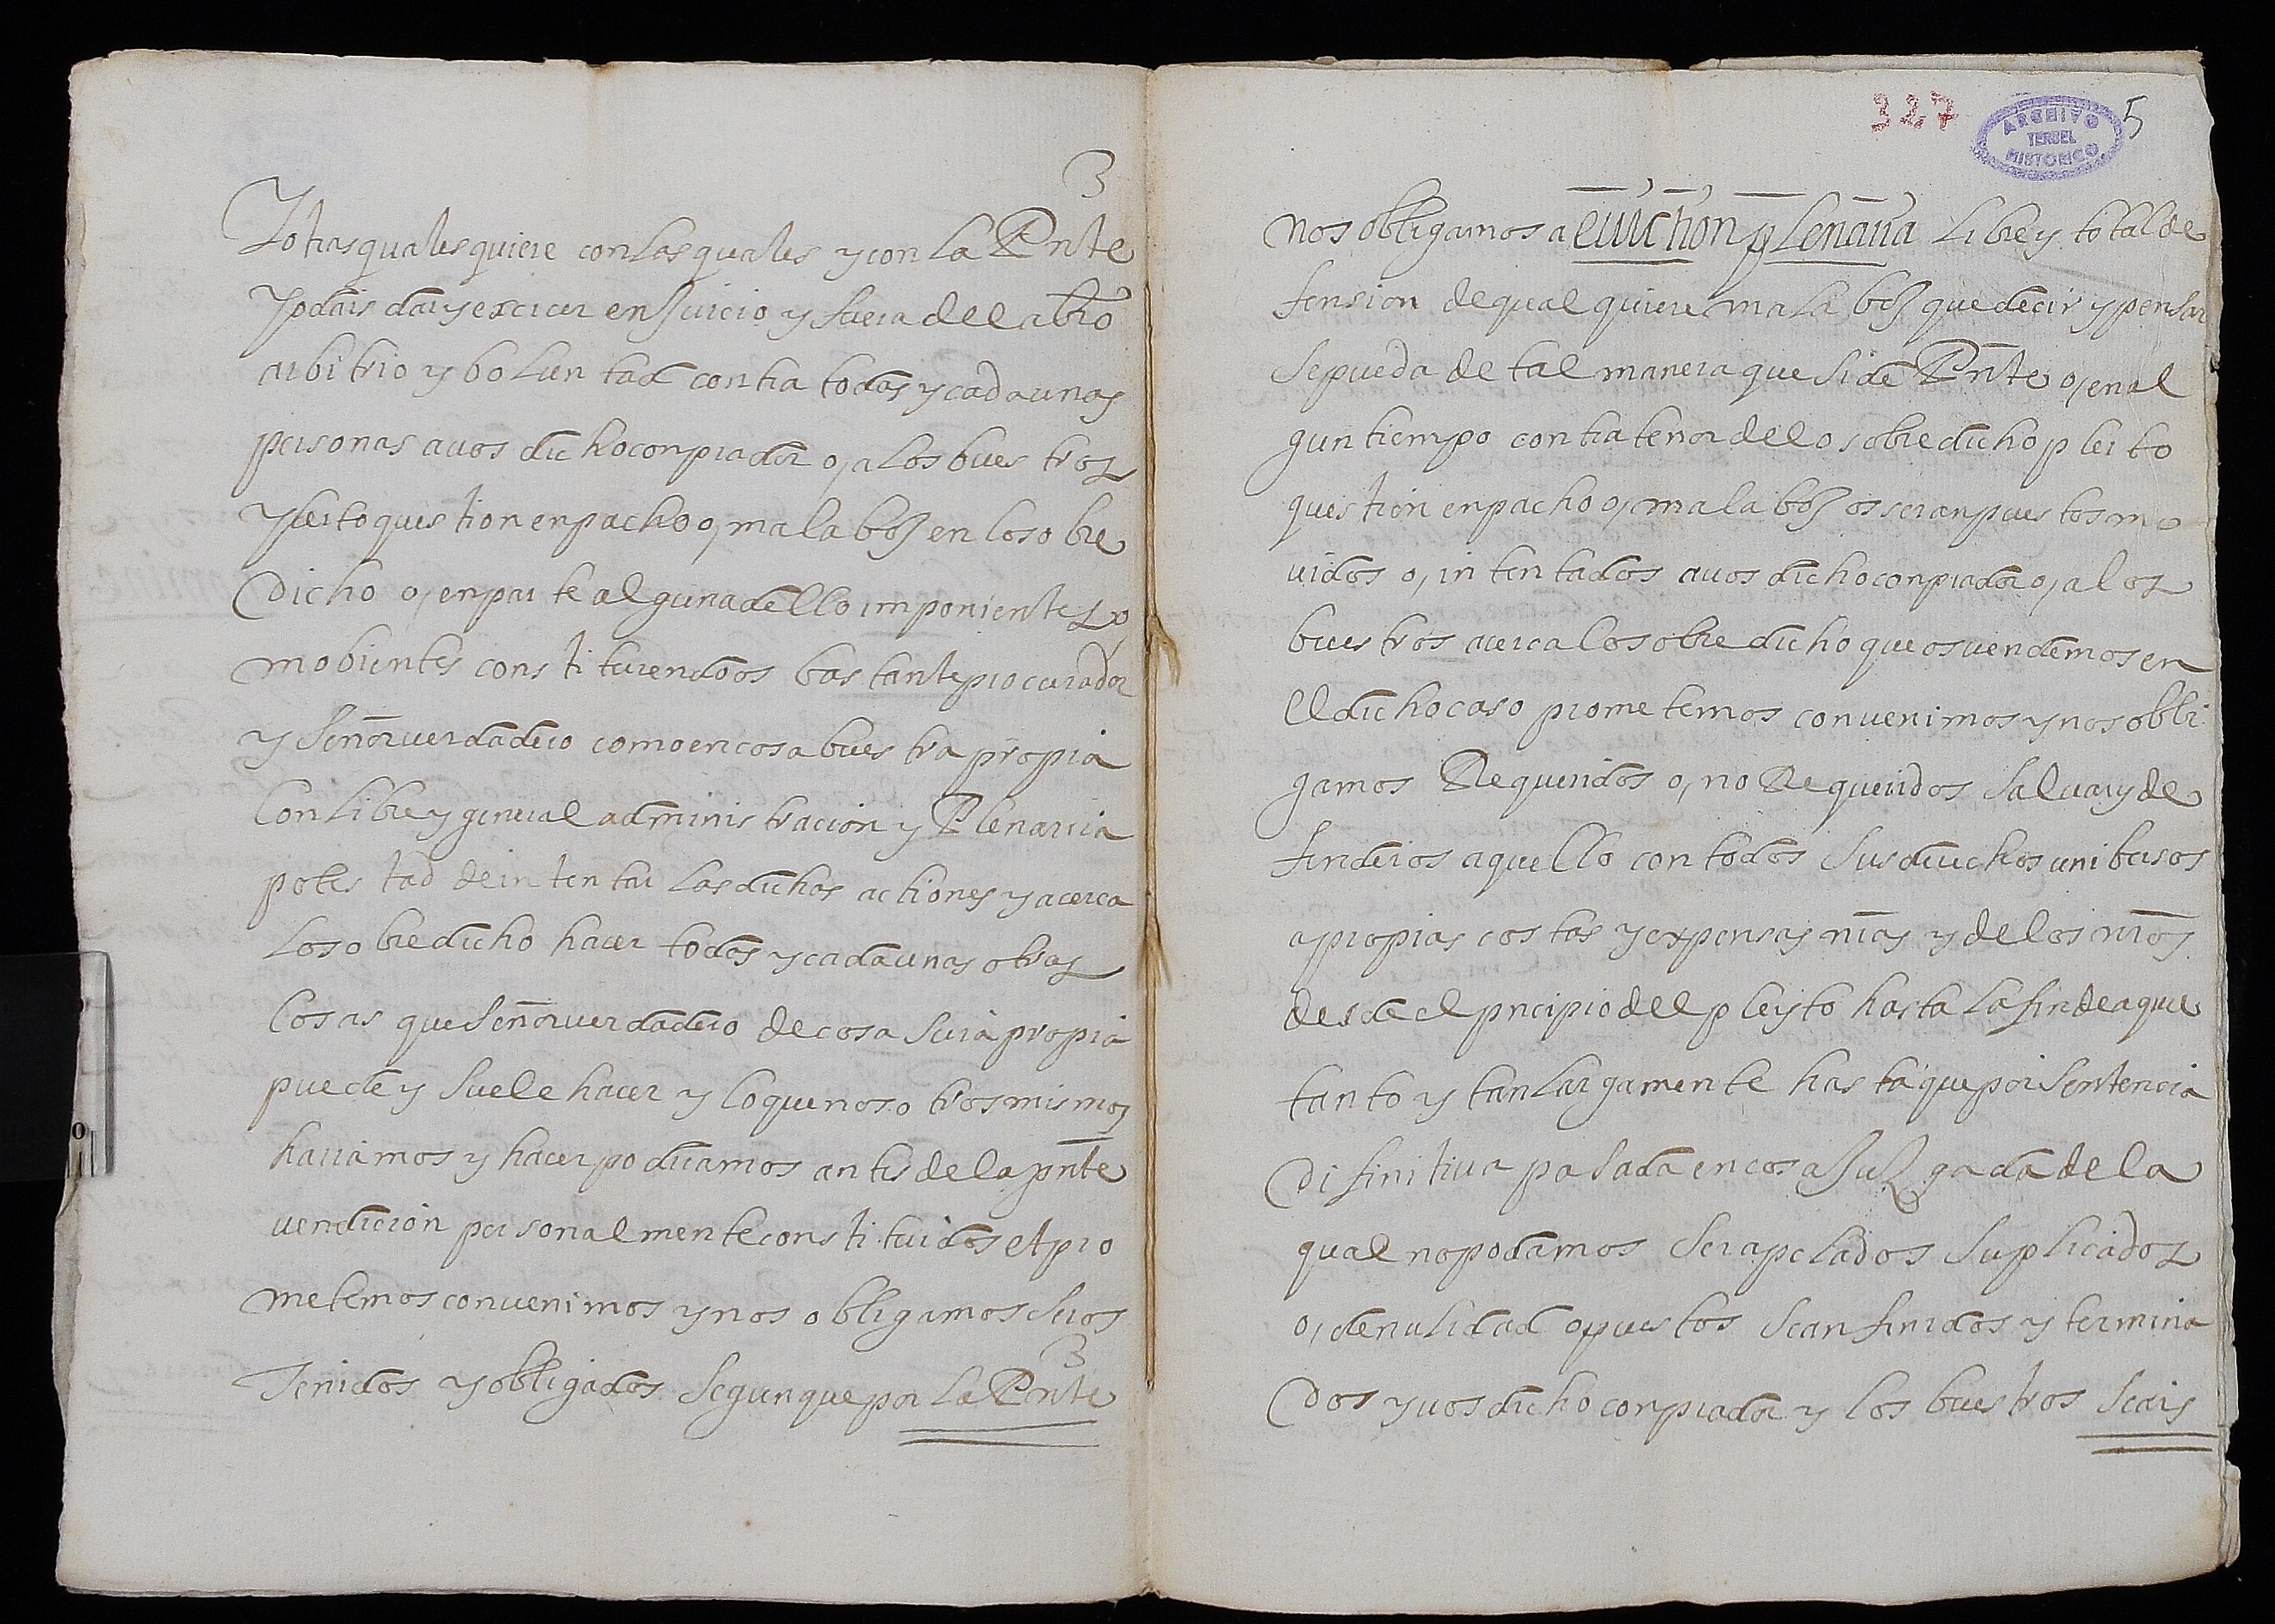 Y otras qualesquiere con las quales y con la Pnte
Ypodais dar y exercer en Juicio y fuera del a bro
arbitrio y boluntad contra todas y cada unas
personas a vos dicho conprador o, a los buestros
Ypleito question enpacho o, mala boz en lo sobre
Dicho o, en parte alguna dello imponientes o
mobientes constituiendoos bastante procurador
y Señor verdadero como en cosa buestra propia
Con libre y general administracion y Plenaria
potestad de intentar las dichas actiones y acerca
lo sobre dicho hacer todas y cada unas otras
Cosas que Señor verdadero de cosa suia propia
puede y suele hacer y lo que nosotros mismos
hariamos y hacer podriamos antes de la pnte
vendicion personalmente constituidos et pro
metemos convenimos y nos obligamos seros
Tenidos y obligados segun que por la Pnte
327
ARCHIVO
TERUEL
HISTORICO
5
nos obligamos a euiction plenaria libre y total de
fension de qual quiere mala boz que decir y pensar
se pueda de tal manera que si de Pnte o, en al
gun tiempo contra tenor de lo sobre dicho pleito
question enpacho o, mala boz os seran puestos mo
uidos o, intentados a vos dicho conprador o, a los
buestros acerca lo sobre dicho que os vendemos en
el dicho caso prometemos convenimos y nos obli
gamos Requeridos o, no Requeridos salvar y de
fenderos aquello con todos sus drechos unibersos
a propias costas y expensas nras y de los nros
desde el pncipio del pleyto hasta la fin de aque
tanto y tan largamente hasta que por sentencia
Difinitiva pasada en cosa Juzgada de la
qual no podamos ser apelados suplicados
o, de nulidad opuestos sean finidos y termina
Dos y vos dicho conprador y los buestros seais